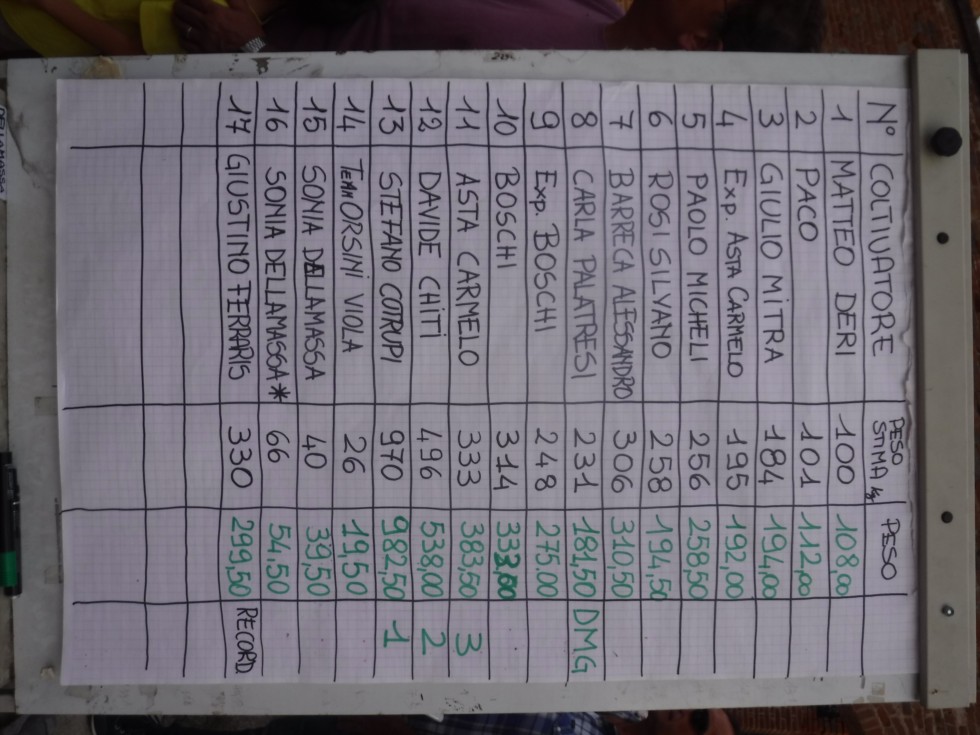 N° COLTIVATORE PESO STIMA kg PESO
1 MATTEO DERI 100 108,00
2 PACO 101 112,00
3 GIULIO MITRA 184 194,00
4 Exp. ASTA CARMELO 195 192,00
5 PAOLO MICHELI 256 258,50
6 ROSI SILVANO 258 194,50
7 BARRECA ALESSANDRO 306 310,50
8 CARLA PALATRESI 231 181,50 DMG
9 Exp. BOSCHI 248 275,00
10 BOSCHI 314 333,00
11 ASTA CARMELO 333 383,50 3
12 DAVIDE CHITI 496 538,00 2
13 STEFANO COTRUPI 970 982,50 1
14 TEAM ORSINI VIOLA 26 19,50
15 SONIA DELLAMASSA 40 39,50
16 SONIA DELLAMASSA* 66 54,50
17 GIUSTINO FERRARIS 330 299,50 RECORD
DELLAMASSA